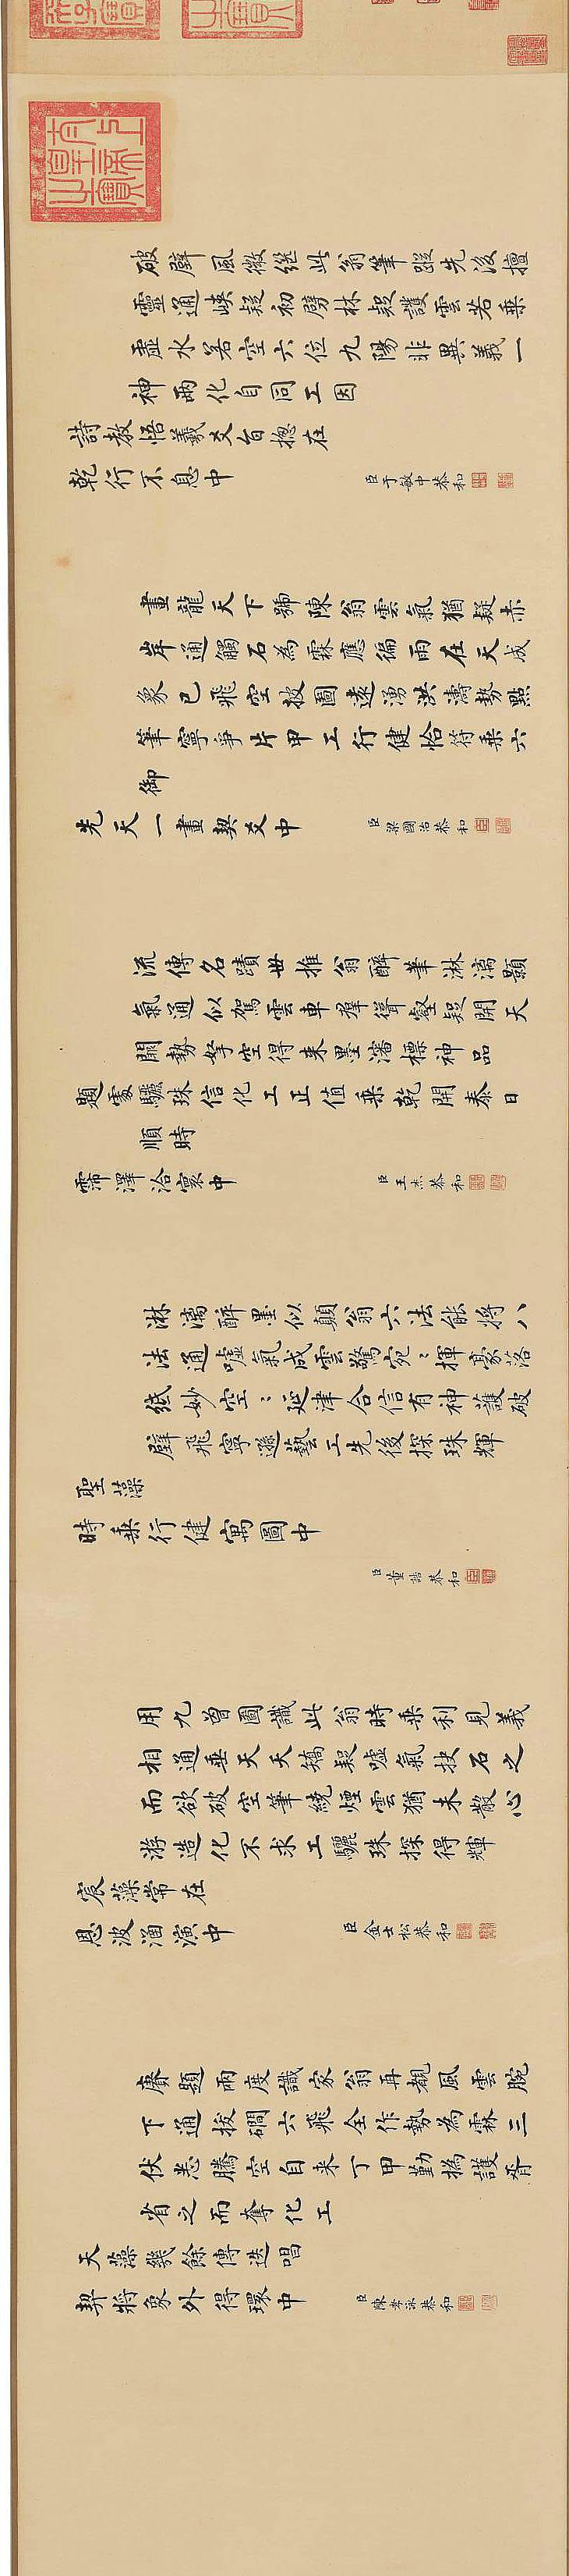 破壁風微繼此翁筆蹤先後擅
靈通峽疑初劈林疑護雲若乘
虛水若空六位九陽非異義一
神兩化自同工因
詩教悟羲爻旨摠在
乾行不息中
臣于敏中恭和
畫龍天下號陳翁雲氣猶疑赤
岸通觸石為霖應徧雨在天成
象已飛空披圖遠湧洪濤勢點
筆寧爭片甲工行健恰符乘六
御
先天一畫契爻中
臣梁國治恭和
流傳名蹟毋推翁醉筆淋漓顥
氣通似駕雲車羣聳壑疑開天
關勢拏空得来墨瀋標神品
題處驪珠信化工正值乘乾開泰日
順時
霈澤洽寰中
臣王杰恭和
淋漓醉墨似顛翁六法能將八
法通噓氣成雲驚宛〻揮豪落
紙妙空〻延津合信有神護破
壁飛寧遜藝工先後探珠輝
聖藻
時乘行健寓圖中
臣董誥恭和
用九曾圖識此翁時乘利見義
相通垂天夭矯疑噓氣抉石之
而欲破空筆繞煙雲猶未散心
游造化不求工驪珠探得輝
宸藻常在
恩波涵演中
臣金士松恭和
賡題兩度識家翁再覩風雲腕
下通拔磵六飛全作勢為霖三
伏恙騰空自来丁甲勤撝護脊
省之而奪化工
天藻幾餘傳迭唱
契將象外得環中
臣陳孝泳恭和